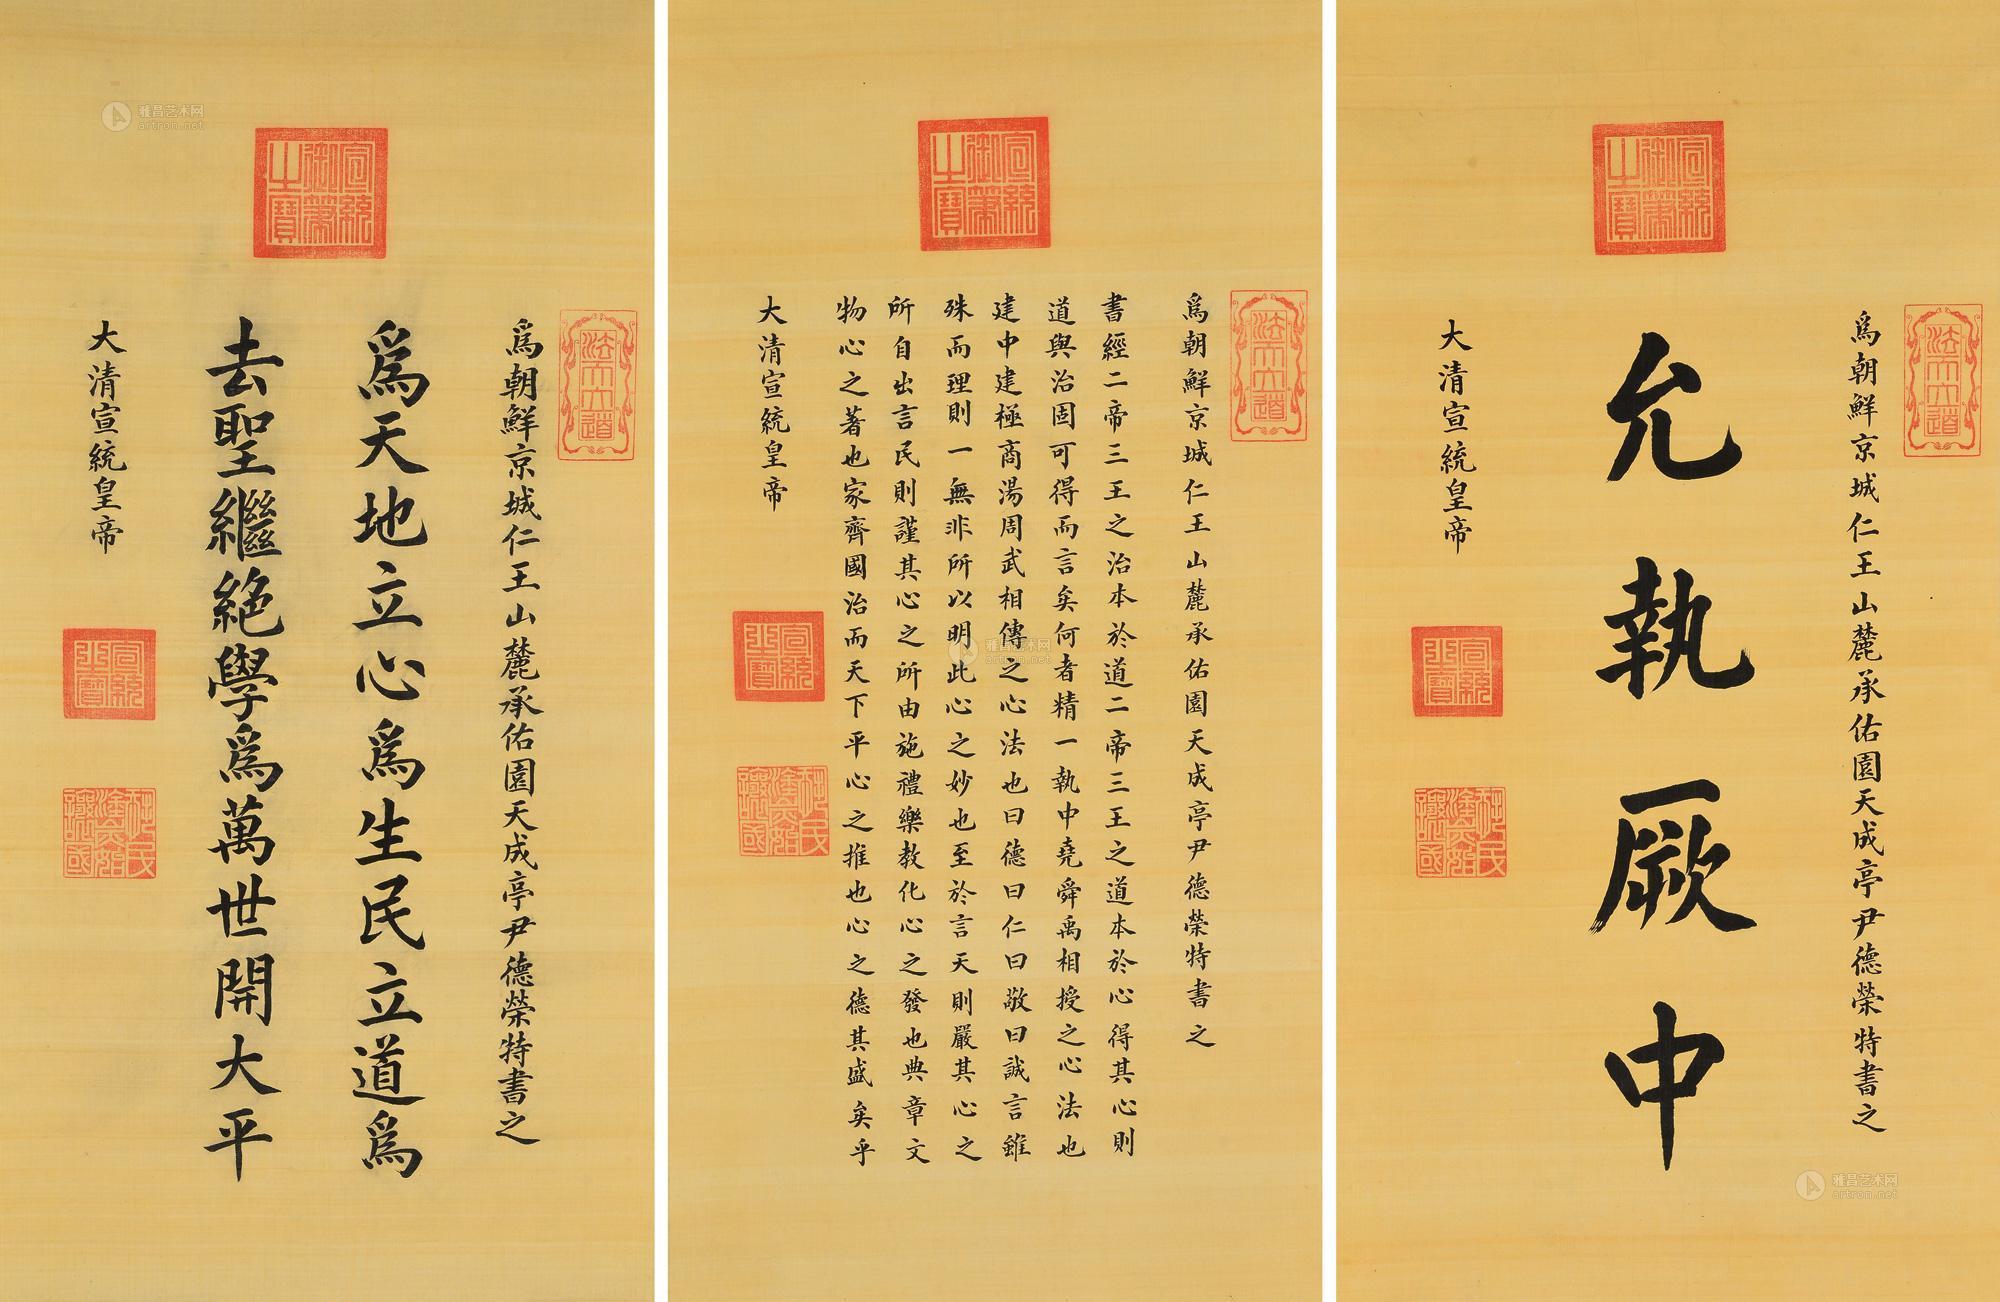 宣統御筆之寶
法天立道
爲朝鮮京城仁王山麓承佑園天成亭尹德榮特書之
允執厥中
大清宣統皇帝
宣統之寶
雅昌艺术网
artron.net
宣統御筆之寶
法天立道
爲朝鮮京城仁王山麓承佑園天成亭尹德榮特書之
書經二帝三王之治本於道二帝三王之道本於心得其心則
道與治固可得而言矣何者精一執中堯舜禹相授之心法也
建中建極商湯周武相傳之心法也曰德曰仁曰敬曰誠言雖
殊而理則一無非所以明此心之妙也至於言天則嚴其心之
所自出言民則謹其心之所由施禮樂教化心之發也典章文
物心之著也家齊國治而天下平心之推也心之德其盛矣乎
大清宣統皇帝
宣統之寶
雅昌艺术网
artron.net
宣統御筆之寶
法天立道
爲朝鮮京城仁王山麓承佑園天成亭尹德榮特書之
爲天地立心爲生民立道爲
去聖繼絕學爲萬世開大平
大清宣統皇帝
宣統之寶
雅昌艺术网
artron.net